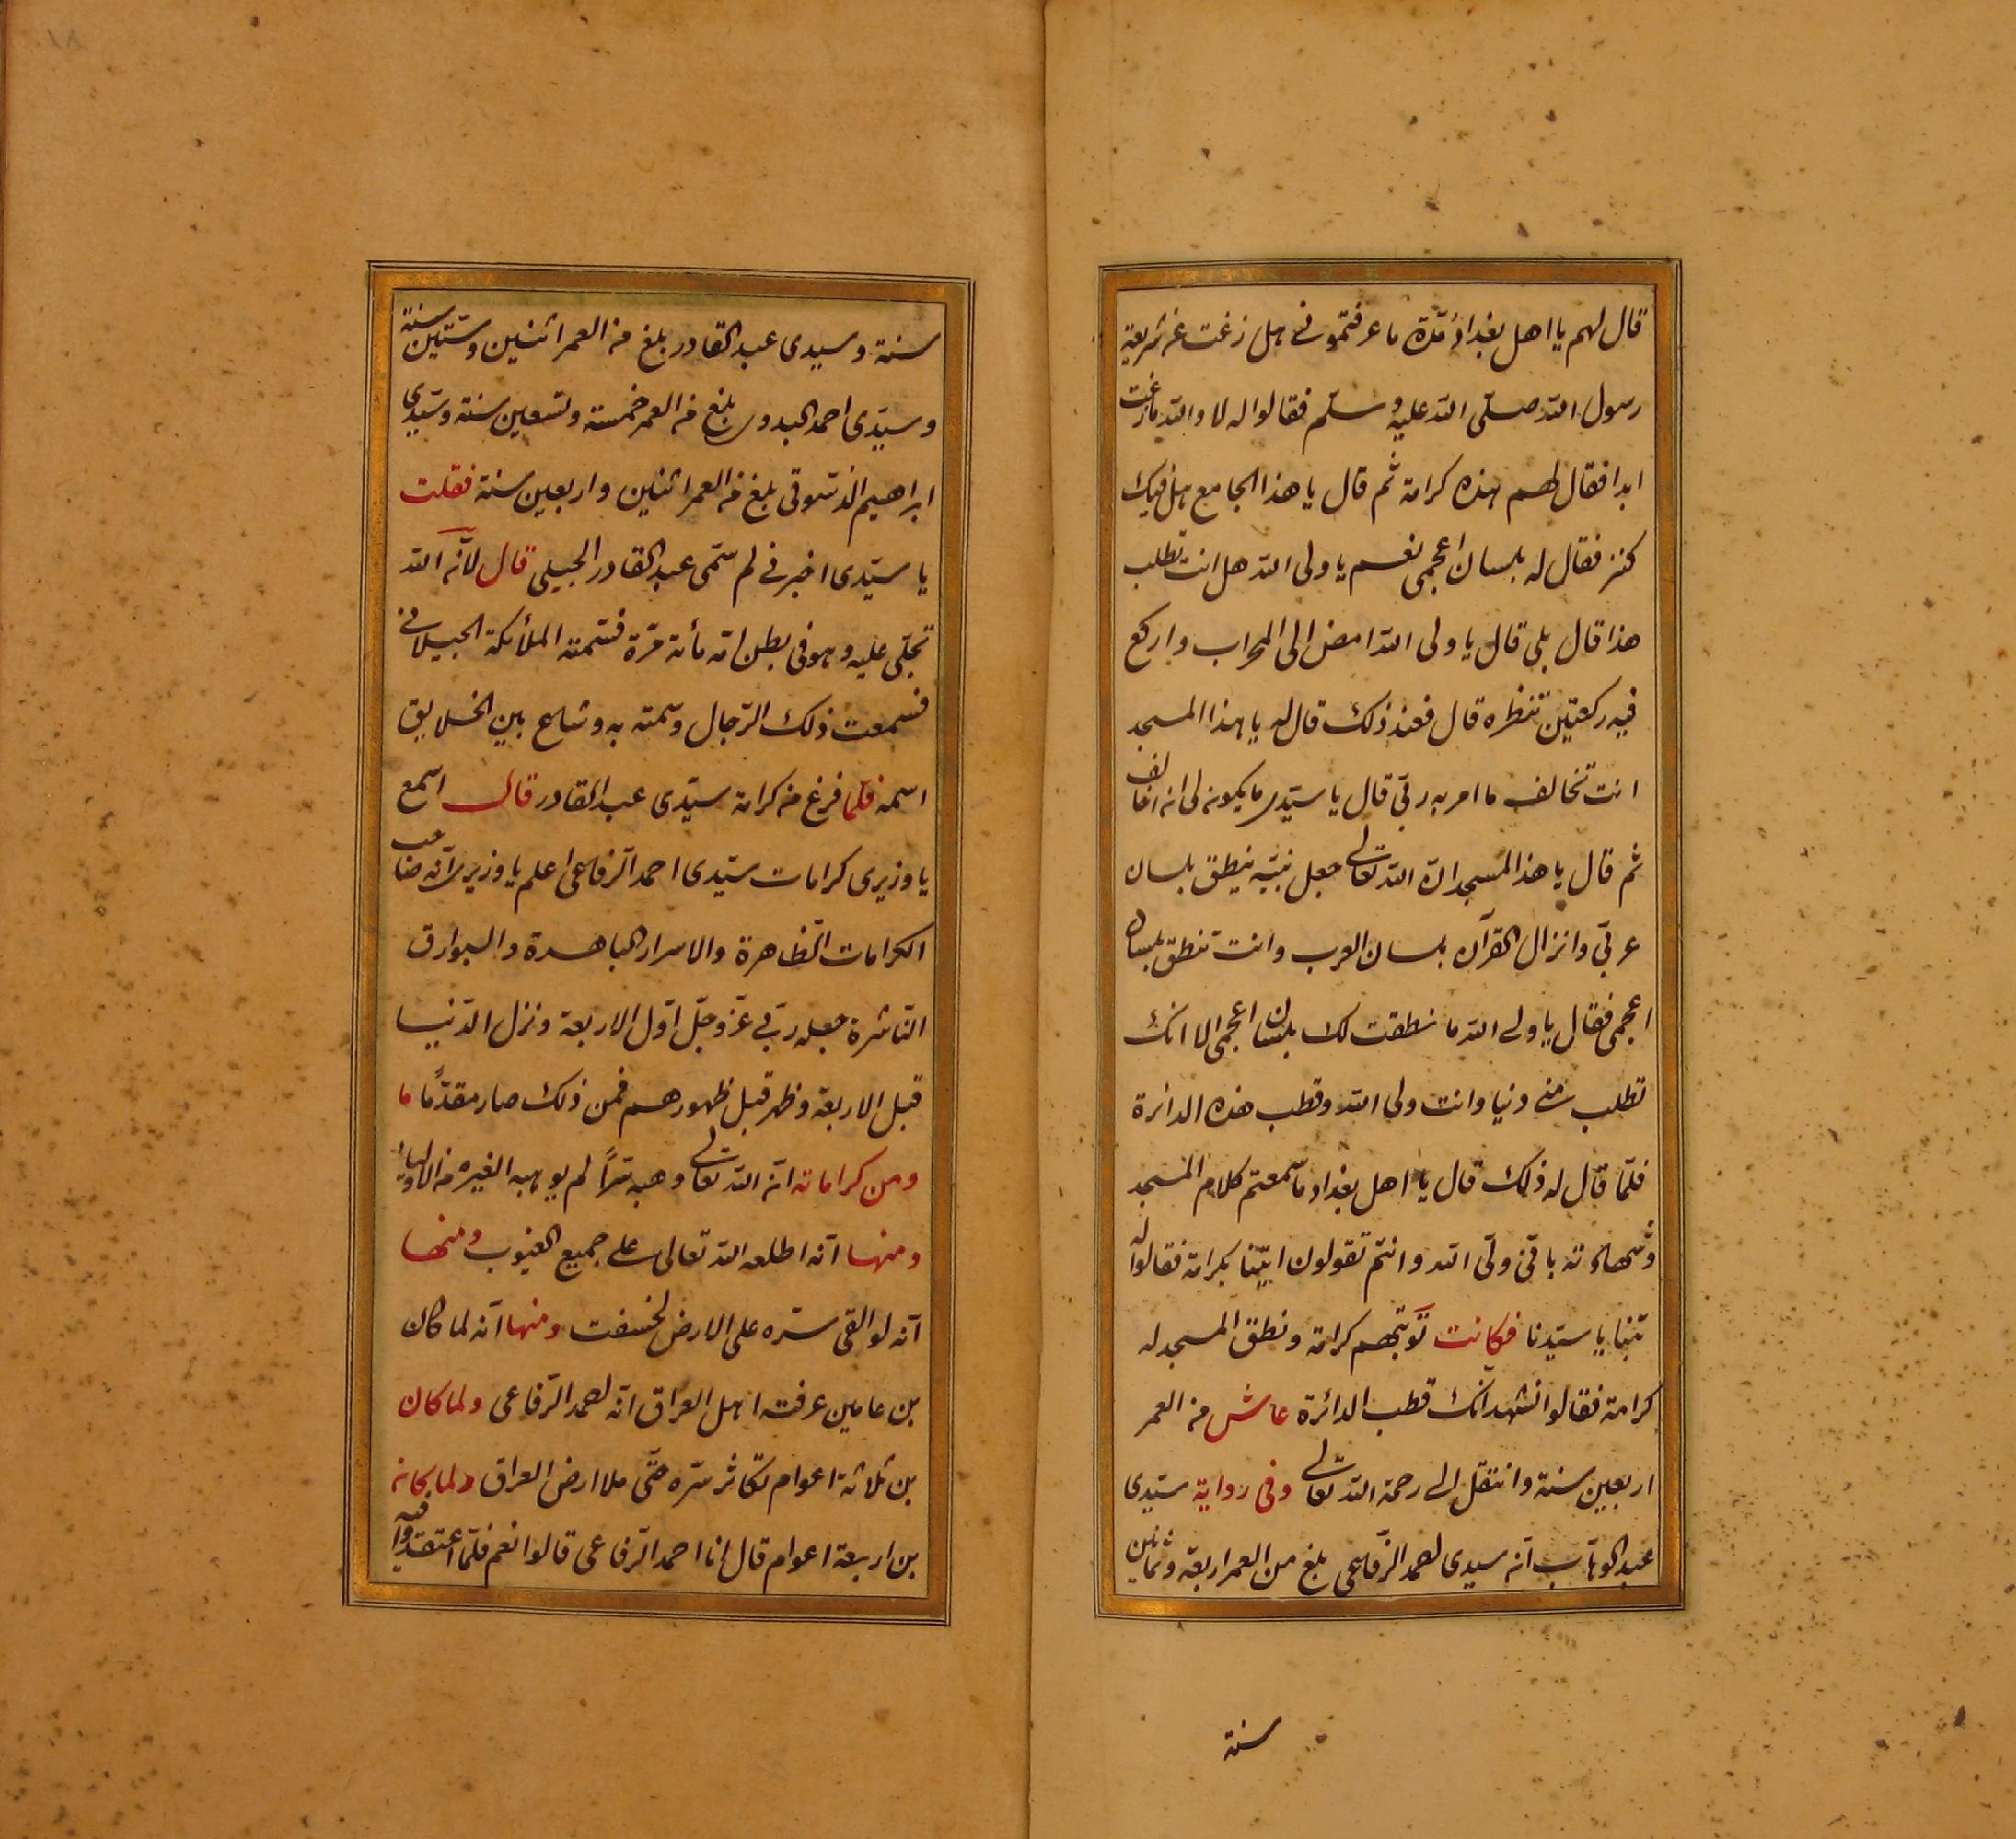 قال لهم يا اهل بغداد مدّة ما عرفتمونى هل زغت عن شريعة
رسول الله صلّى الله عليه وسلّم فقالوا له لا والله ما زغت
ابدا فقال لهم هذه كرامة ثم قال يا هذا الجامع هل فيك
كنز فقال له بلسان اعجمى نعم يا ولى الله هل انت تطلب
هذا قال بلى قال يا ولى الله امض الى المحراب واركع
فيه ركعتين تنظره قال فعند ذلك قال له يا هذا المسجد
انت تخالف ما امر به ربّى قال يا سيّدى ما يكون لى ان اخالف
ثم قال يا هذا المسجد انّ الله تعالى جعل نبيّه ينطق بلسان
عربّى وانزال القرآن بلسان العرب وانت تنطق بلسان
اعجمى فقال يا ولى الله ما نطقت لك بلسان اعجمى الا انك
تطلب منّى دنيا وانت ولى الله وقطب هذه الدائرة
فلمّا قال له ذلك قال يا اهل بغداد ما سمعتم كلام المسجد
وشهادته بانّى ولّى الله وانتم تقولون ايتنا بكرامة فقالوا له
تبنا يا سيّدنا فكانت توبتهم كرامة ونطق المسجد له
كرامة فقالوا نشهد انّك قطب الدائرة عاش من العمر
اربعين سنة وانتقل الى رحمة الله تعالى وفى رواية سيّدى
عبد الوهّاب انّ سيدى احمد الرّفاعى بلغ من العمر اربعة وثمانين
سنة
١٨
سنة وسيدى عبد القادر بلغ من العمر اثنين وستّين سنة
وسيّدى احمد البدوى بلغ من العمر خمسة وتسعين سنة وسيّدى
ابراهيم الدّسوقى بلغ من العمر اثنين واربعين سنة فقلت
يا سيّدى اخبرنى لم سمّى عبد القادر الجيلى قال لانّه الله
تجلّى عليه وهو فى بطن امّه مأته مرّة فسّمته الملائكة الجيلانى
فسمعت ذلك الرّجال وسمّته به وشاع بين الخلايق
اسمه فلمّا فرغ من كرامة سيّدى عبد القادر قال اسمع
يا وزيرى كرامات سيّدى احمد الرّفاعى اعلم يا وزيرى انّه صاحب
الكرامات الظّاهرة والاسرار الباهرة والبوارق
النّاشرة جعله ربّى عزّ وجلّ اوّل الاربعة ونزل الدّنيا
قبل الاربعة وظهر قبل ظهورهم فمن ذلك صار مقدّمًا ما
ومن كراماته انّ الله تعالى وهبه سرّاً لم يوهبه لغيره من الاولياء
ومنها انّه اطلعه الله تعالى على جميع الغيوب ومنها
انّه لو القى سرّه على الارض لخسفت ومنها انّه لما كان
بن عامين عرفت اهل العراق انّه احمد الرّفاعى ولما كان
بن ثلاثة اعوام تكاثر سرّه حتّى ملا ارض العراق ولما كان
بن اربعة اعوام قال انا احمد الرّفاعى قالوا نعم فلمّا اعتقدوا فيه